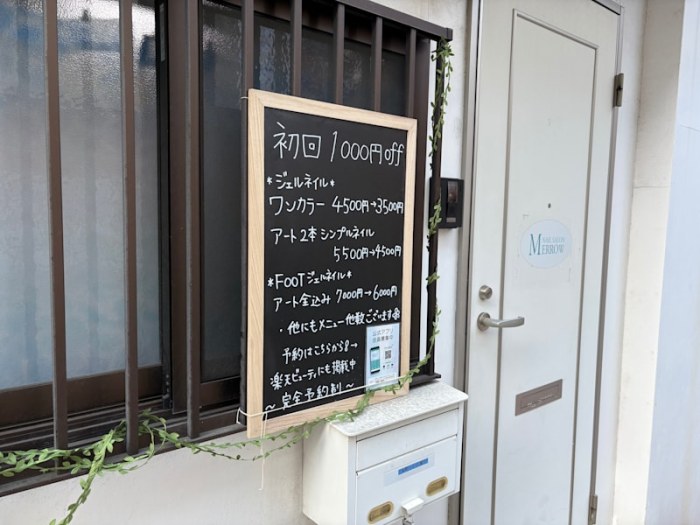 初回 1000円off
*ジェルネイル*
ワンカラー 4500円→3500円
アート2本 シンプルネイル
5500円→4500円
*FOOTジェルネイル*
アート全込み 7000円→6000円
・他にもメニュー他数ございます
予約はこちらから→
楽天ビューティにも掲載中
～完全予約制～
MERROW